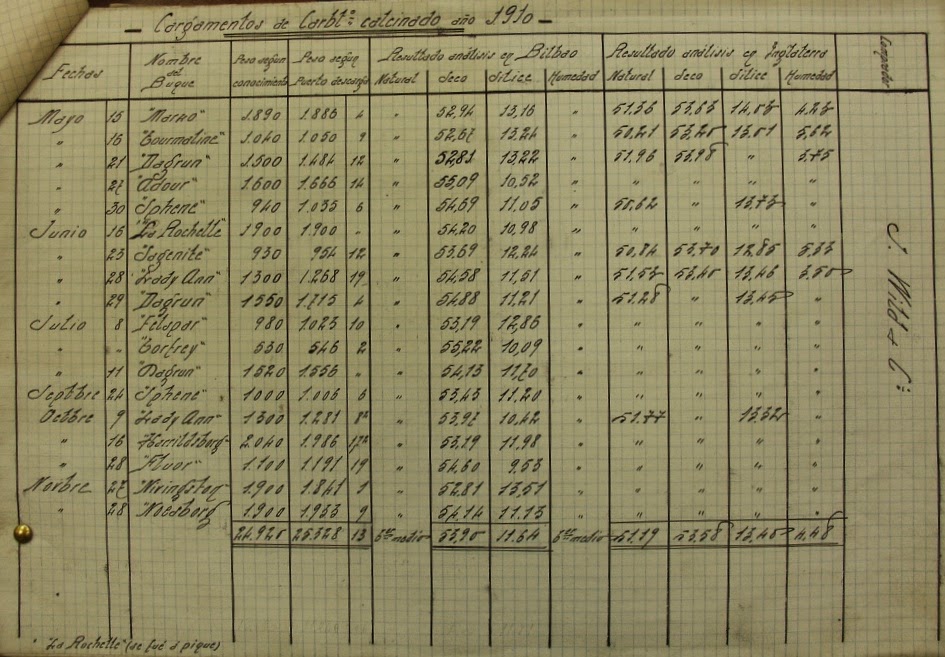 Cargamentos de Carbto: calcinado año 1910
Fechas Nombre del Buque Peso según conocimiento Peso según Puerto descarga Resultado análisis en Bilbao Resultado análisis en Inglaterra Comprador
Natural Seco Sílice Humedad Natural Seco Sílice Humedad
Mayo 15 "Marno" 1.890 1.886 4 " 52,94 13,16 " 51.36 53,63 14,03 4,23
" 16 "Tourmaline" 1.040 1.050 9 " 52,67 13,24 " 50,21 53,20 13,01 5,62
" 21 "Dagrun" 1.500 1.484 12 " 52,81 13,22 " 51,96 53,98 " 3,75
" 27 "Adour" 1.600 1.666 14 " 55,09 10,52 " " " " "
" 30 "Sphene" 940 1.035 6 " 54,69 11,05 " 50,62 " 13,73 "
Junio 16 "La Rochelle" 1.900 1.900 " " 54,20 10,98 " " " " "
" 23 "Sagenite" 930 954 12 " 53,69 12,24 " 50,84 53,70 12,85 5,33
" 28 "Lady Ann" 1300 1.268 19 " 54,58 11,51 " 51,53 53,40 13,46 3,50
" 29 "Dagrun" 1550 1.715 4 " 54,88 11,21 " 51,28 " 13,45 "
Julio 8 "Felspar" 980 1.023 10 " 53,19 12,86 " " " " "
" " "Torfrey" 530 546 2 " 55,22 10,09 " " " " "
" 11 "Dagrun" 1520 1.556 " " 54,13 11,70 " " " " "
Septbre 24 "Sphene" 1000 1.006 6 " 53,43 11,20 " " " " "
Octbre 9 "Lady Ann" 1300 1.281 8 " 53,97 10,42 " 51,77 " 13,32 "
" 16 2.040 1.986 17 " 53,19 11,98 " " " " "
" 28 "Fluor" 1.100 1.191 19 " 54,60 9,53 " " " " "
Novbre 27 1.900 1.841 1 " 52,81 13,51 " " " " "
" 28 1.900 1.933 9 " 54,14 11.13 " " " " "
24.920 25.328 13 medio 53,90 11.64 medio 51.19 53,58 13,40 4,48
J. Wild & Cª
* "La Rochelle" (se fué á pique)